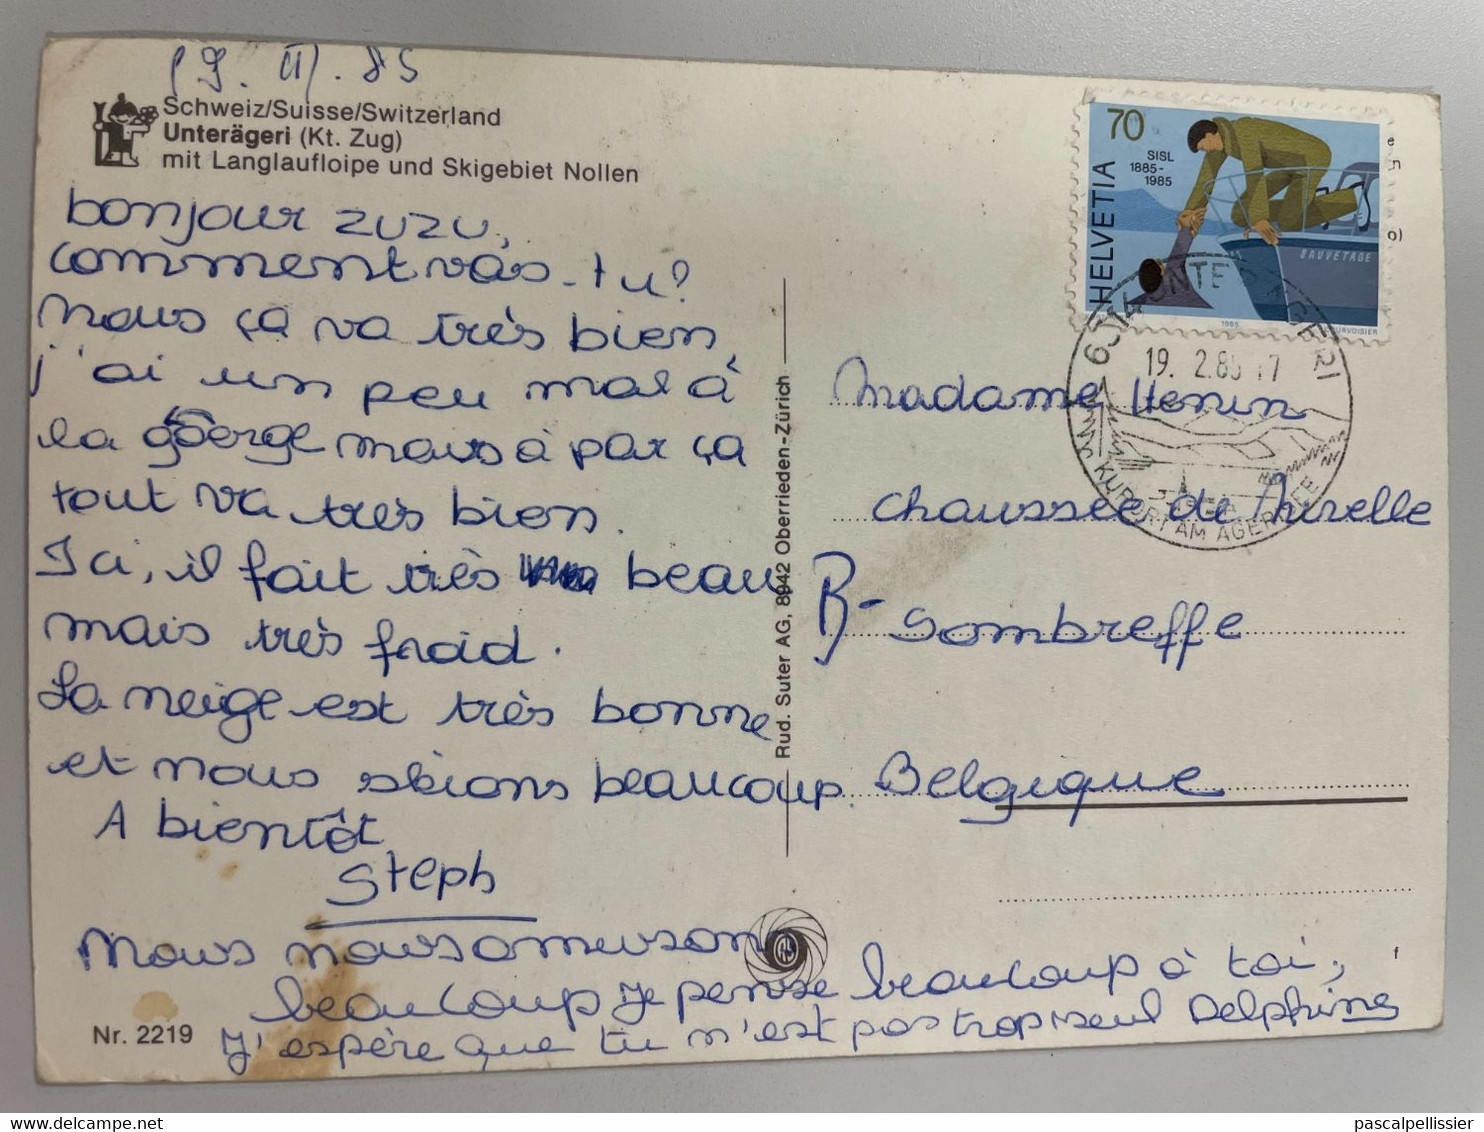 19. II. 85
Schweiz/Suisse/Switzerland
Unterägeri (Kt. Zug)
mit Langlaufloipe und Skigebiet Nollen
bonjour zuzu,
comment vas-tu?
Nous ça va très bien,
j'ai un peu mal à
la gorge mais à par ça
tout va très bien.
Ici, il fait très beau
mais très froid.
La neige est très bonne
et nous skions beaucoup.
A bientôt
Steph
Nous nous amuson
beaucoup je pense beaucoup à toi,
J'espère que tu n'est pas trop seul Delphine
Nr. 2219
Rud. Suter AG, 8942 Oberrieden-Zürich
70
SISL
1885-
1985
HELVETIA
SAUVETAGE
1985
6314 UNTERÄGERI
19. 2.85 17
KURORT AM ÄGERISEE
Madame Henin
chaussée de Nivelle
B- Sombreffe
Belgique
f
delcampe.net
pascalpellissier